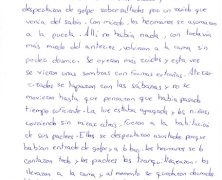 despertaron de golpe sobresaltados por un ruido que
venía del salón. Con miedo, los hermanos se asomaron
a la puerta. Allí no había nada, con todavía
más miedo del anterior, volvieron a la cama sin
poder dormir. Se oyeron más ruidos y esta vez
se vieron unas sombras con formas extrañas.
se taparon con las sábanas y no se
movieron hasta que pensaron que había pasado
tiempo suficiente. La luz estaba apagada y los niños,
corriendo sin mirar atrás, fueron a la habitación
de sus padres. Ellos se despertaron asustados porque
habían entrado de golpe y a Los hermanos se lo
contaron todo y los padres los tranquilizaron. los
llevaron a la cama y al momento se quedaron dormidos